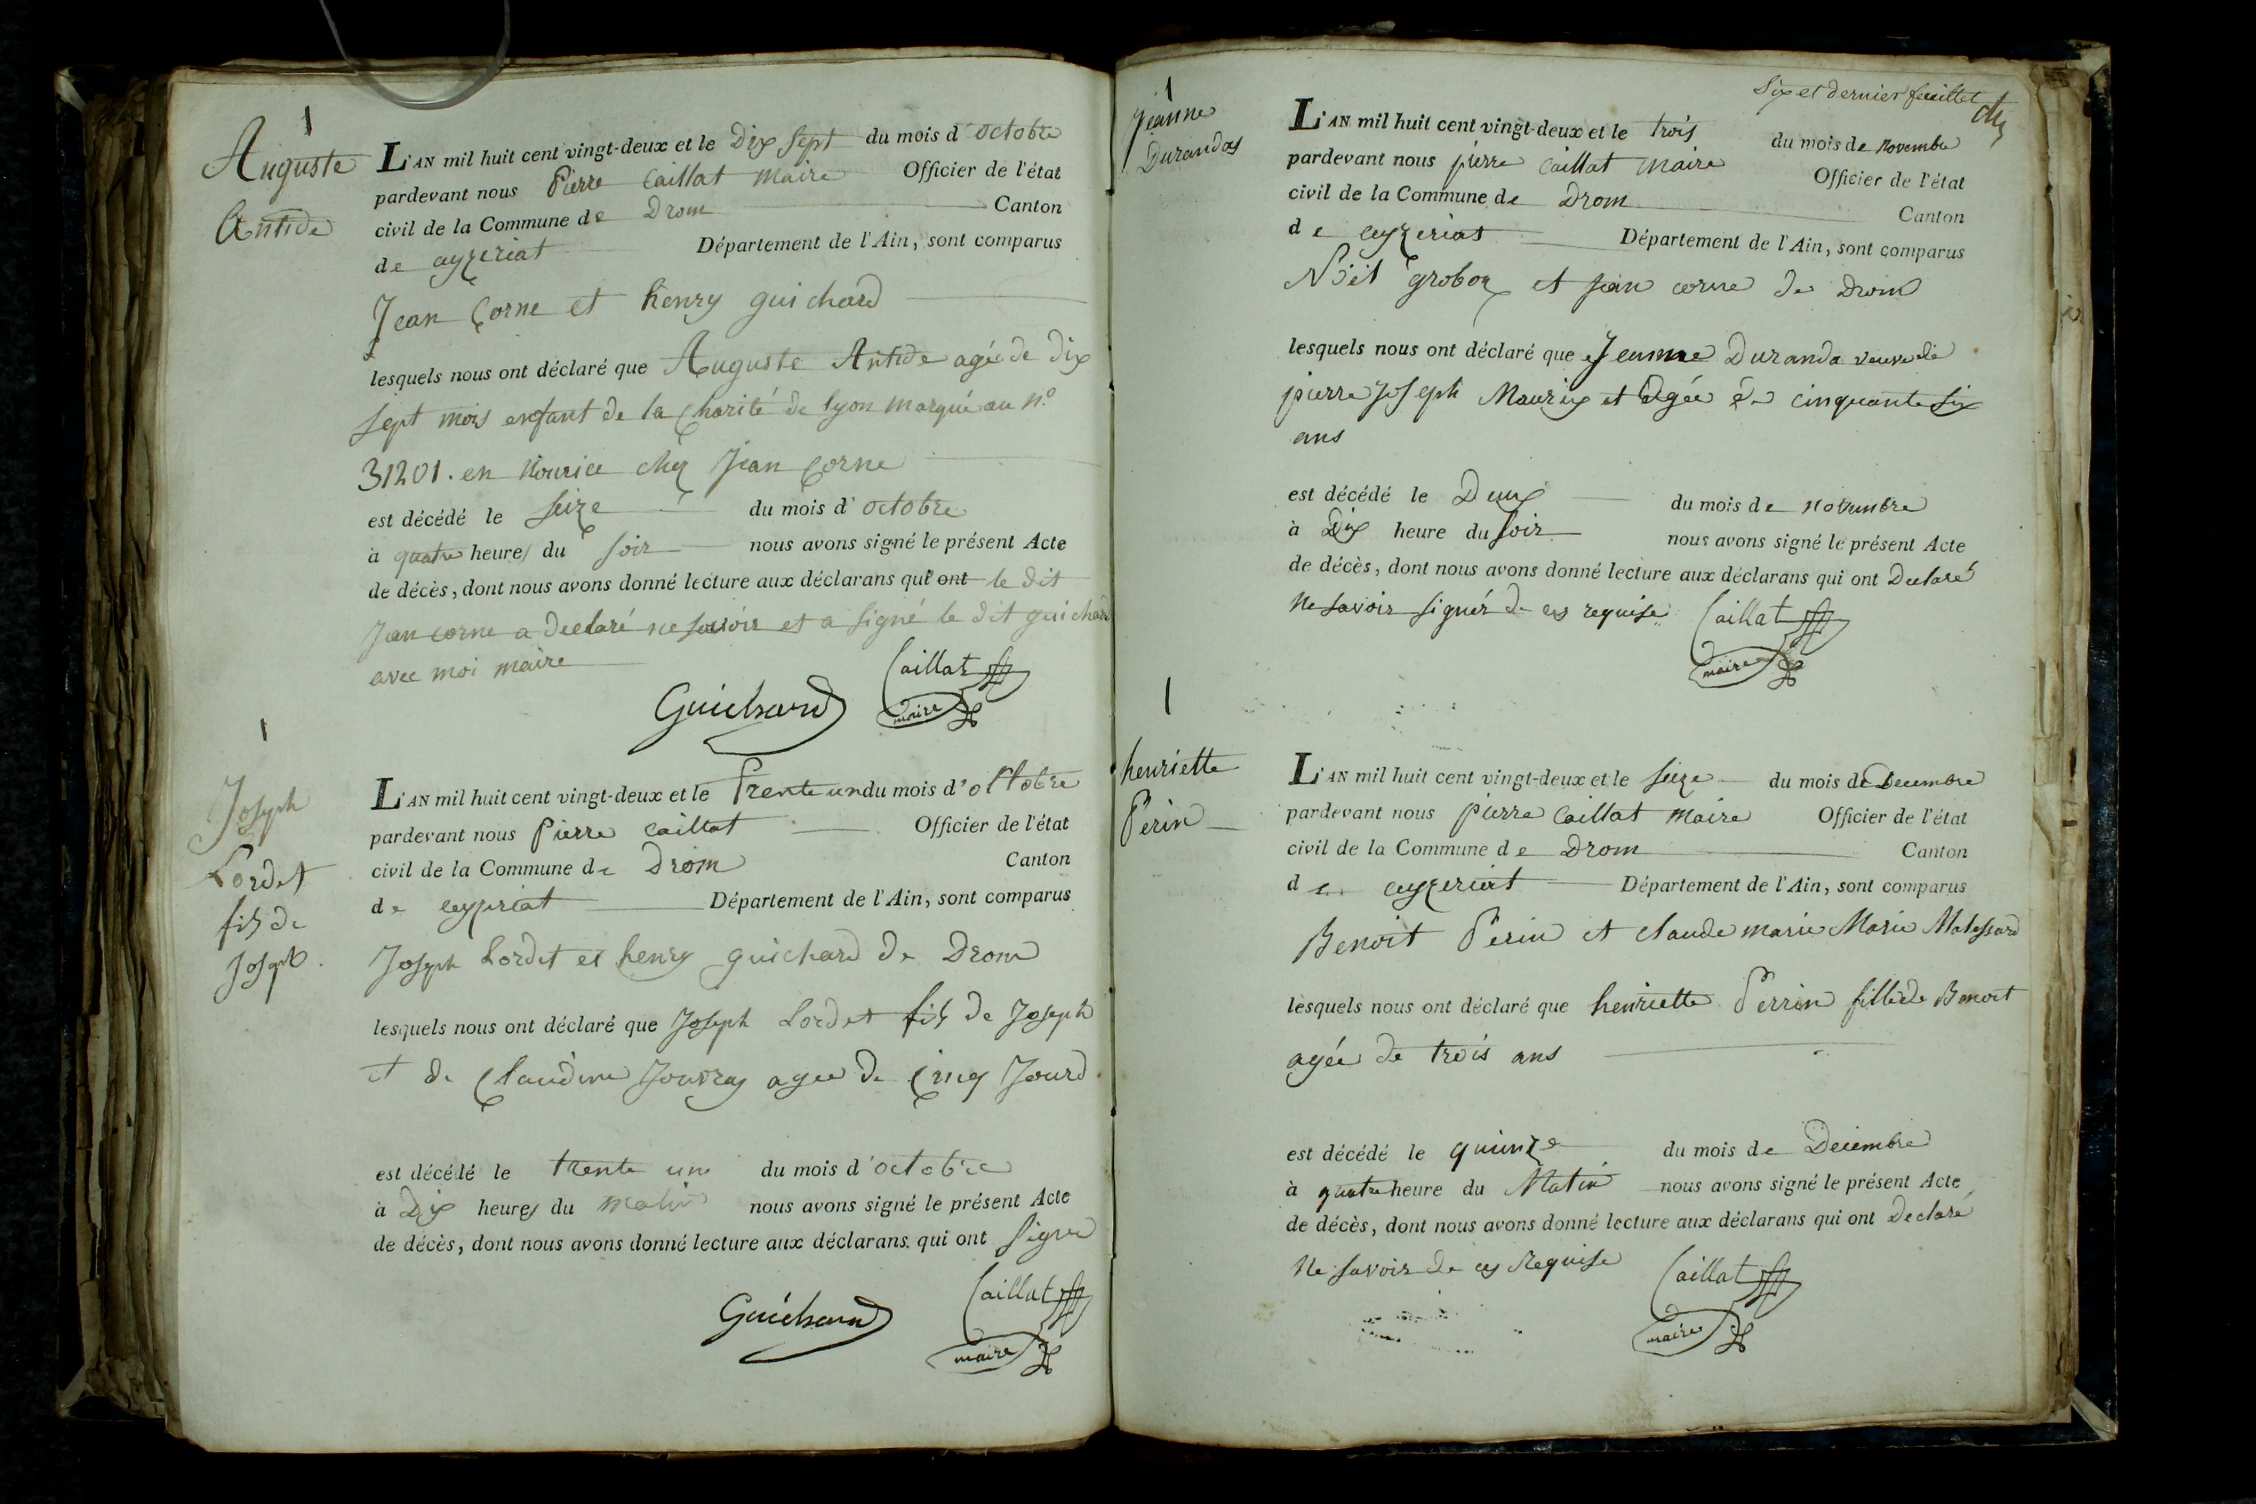 Auguste
Antide
L'AN mil huit cent vingt-deux et le Dix sept du mois d'octobre
pardevant nous Pierre Caillat maire Officier de l'état
civil de la Commune de Drom Canton
de ceyzeriat Département de l'Ain, sont comparus
Jean Corne et henry guichard
lesquels nous ont déclaré que Auguste Antide agée de dix
sept mois enfant de la Charité de lyon marqué au n.º
31201. en Nourice chez Jean Corne
est décédé le seize du mois d'octobre
à quatre heures du soir nous avons signé le présent Acte
de décès, dont nous avons donné lecture aux déclarans qui ont le dit
Jean corne a declaré ne savoir et a signé le dit guichard
avec moi maire
Guichard Caillat
maire
Joseph
Lordet
fils de
Joseph.
L'AN mil huit cent vingt-deux et le Trente un du mois d'octobre
pardevant nous Pierre caillat Officier de l'état
civil de la Commune de Drom Canton
de ceyzeriat Département de l'Ain, sont comparus
Joseph Lordet et henry guichard de Drom
lesquels nous ont déclaré que Joseph Lordet fils de Joseph
et de Claudine Jouvray agee de Cinq Jours
est décédé le trente un du mois d'octobre
à Dix heures du matin nous avons signé le présent Acte
de décès, dont nous avons donné lecture aux déclarans qui ont signé
Guichard Caillat
maire
Six et dernier feuillet
Jeanne
Durandas
L'AN mil huit cent vingt-deux et le trois du mois de novembre
pardevant nous pierre caillat maire Officier de l'état
civil de la Commune de Drom Canton
de ceyzeriat Département de l'Ain, sont comparus
Noël groboz et jean corne de Drom
lesquels nous ont déclaré que Jeanne Duranda veuve de
pierre Joseph Maurix et agée de cinquante six
ans
est décédé le Deux du mois de novembre
à Dix heure du soir nous avons signé le présent Acte
de décès, dont nous avons donné lecture aux déclarans qui ont Declaré
ne savoir signér de ces requise Caillat
maire
henriette
Perin
L'AN mil huit cent vingt-deux et le seize du mois de Decembre
pardevant nous pierre Caillat maire Officier de l'état
civil de la Commune de Drom Canton
de ceyzeriat Département de l'Ain, sont comparus
Benoit Perin et claude marie Marie Malessard
lesquels nous ont déclaré que henriette Perrin fille de Benoit
agée de trois ans
est décédé le quinze du mois de Decembre
à quatre heure du Matin nous avons signé le présent Acte
de décès, dont nous avons donné lecture aux déclarans qui ont Declaré
Ne savoir de ces Requise Caillat
maire